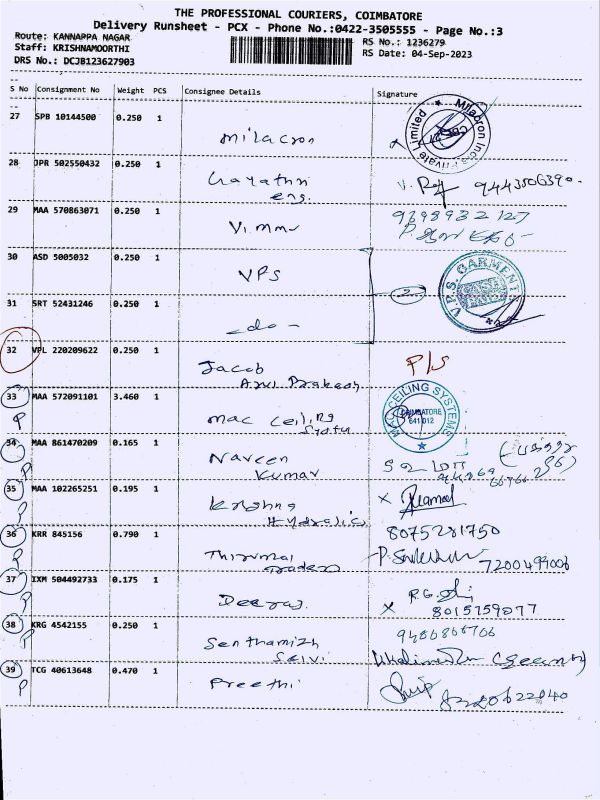 THE PROFESSIONAL COURIERS, COIMBATORE
Delivery Runsheet - PCX - Phone No.:0422-3505555 - Page No.:3
Route: KANNAPPA NAGAR
Staff: KRISHNAMOORTHI
DRS No.: DCJB123627903
RS No.: 1236279
RS Date: 04-Sep-2023
S No Consignment No Weight PCS Consignee Details Signature
27 SPB 10144500 0.250 1 Milacron
Milacron India Private Limited
28 JPR 502550432 0.250 1 Gayathri
eng.
29 MAA 570863071 0.250 1 Vimmu
30 ASD 5005032 0.250 1 VPS
V.P.S. GARMENT
2
31 SRT 52431246 0.250 1 - do -
32 VPL 220209622 0.250 1 Jacob P/S
Arul Prakash
33 MAA 572091101 3.460 1 Mac Ceiling
P System
MAC CEILING SYSTEMS
COIMBATORE
641 012
34 MAA 861470209 0.165 1 Naveen
P Kumar
35 MAA 102265251 0.195 1 Krishna X
P Hydralics
36 KRR 845156 0.790 1 Thirumal 8075281750
P Traders 7200499006
37 IXM 504492733 0.175 1 Deeraj R.G.
P X 8015759077
38 KRG 4542155 0.250 1 Senthamizh
P Selvi
39 TCG 40613648 0.470 1 Preethi
P